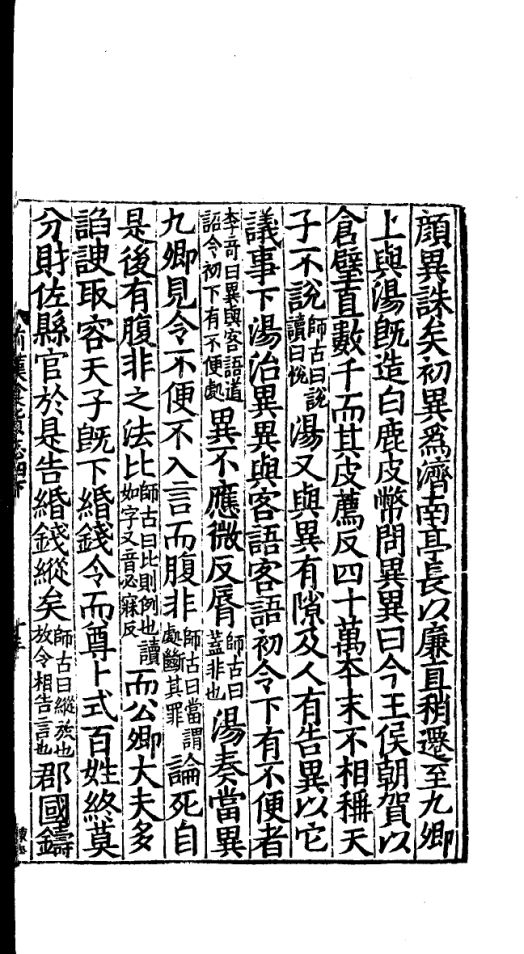 顔異誅矣初異爲濟南亭長以廉直稍遷至九卿
上與湯旣造白鹿皮幣問異異曰今王侯朝賀以
倉璧直數千而其皮薦反四十萬本末不相稱天
子不說師古曰說讀曰悅湯又與異有隙及人有告異以它
議事下湯治異異與客語客語初令下有不便者
李奇曰異與客語道詔令初下有不便處異不應微反脣師古曰蓋非也湯奏當異
九卿見令不便不入言而腹非師古曰當謂處斷其罪論死自
是後有腹非之法比師古曰比則例也讀如字又音必寐反而公卿大夫多
諂諛取容天子旣下緡錢令而尊卜式百姓終莫
分財佐縣官於是告緡錢縱矣師古曰縱放也放令相告言也郡國鑄